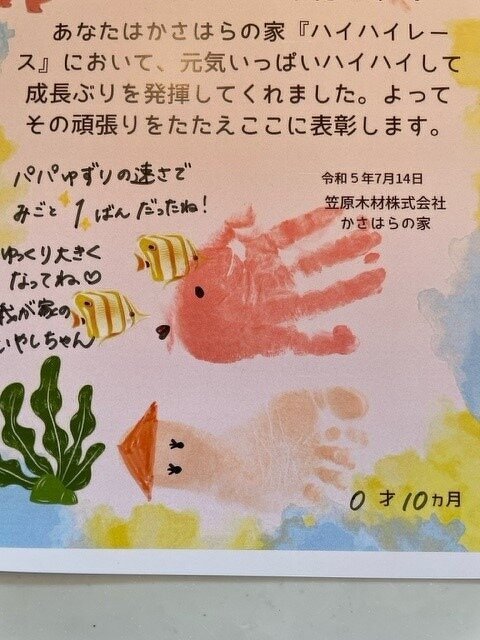 あなたはかさはらの家『ハイハイレー
ス』において、元気いっぱいハイハイして
成長ぶりを発揮してくれました。よって
その頑張りをたたえここに表彰します。
パパゆずりの速さで
みごと1ばんだったね!
ゆっくり大きく
なってね♡
我が家の
いやしちゃん
令和5年7月14日
笠原木材株式会社
かさはらの家
0才10カ月